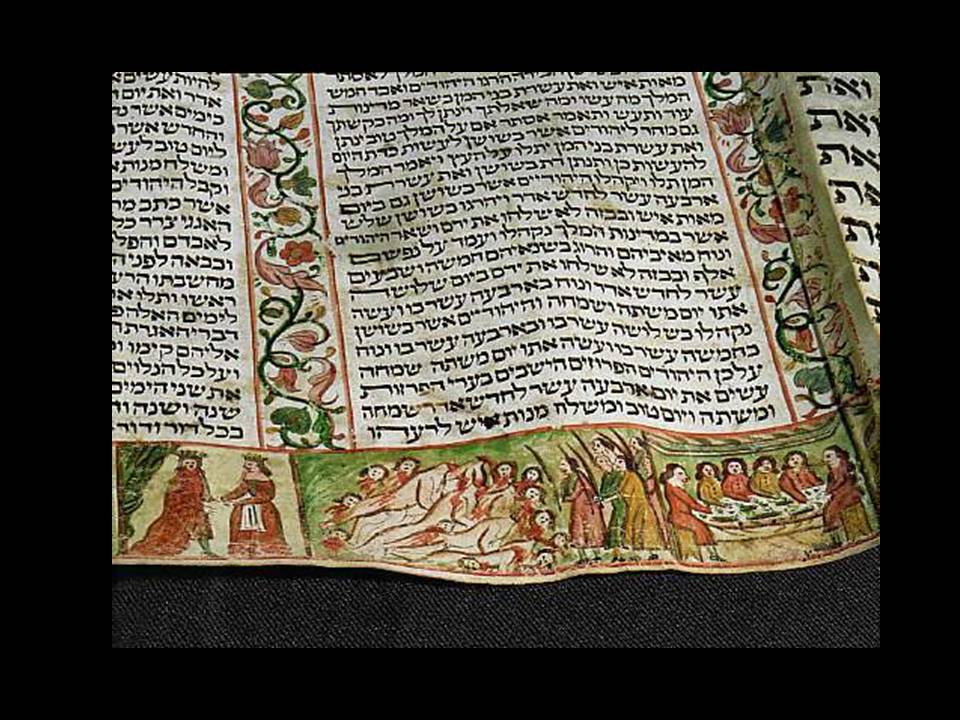 ואת
ואת
ואת
את
את
מאות איש ואת עשרת בני המן בשאר מדינות
המלך מה עשו ומה שאלתך וינתן לך ומה בקשתך
עוד ותעש ותאמר אסתר אם על המלך טוב ינתן
גם מחר ליהודים אשר בשושן לעשות כדת היום
ואת עשרת בני המן יתלו על העץ ויאמר המלך
להעשות כן ותנתן דת בשושן ואת עשרת בני
המן תלו ויקהלו היהודיים אשר בשושן גם ביום
ארבעה עשר לחדש אדר ויהרגו בשושן שלש
מאות איש ובבזה לא שלחו את ידם ושאר היהודים
אשר במדינות המלך נקהלו ועמד על נפשם
ונוח מאיביהם והרוג בשנאיהם חמשה ושבעים
אלף ובבזה לא שלחו את ידם ביום שלושה
עשר לחדש אדר ונוח בארבעה עשר בו ועשה
אתו יום משתה ושמחה והיהודיים אשר בשושן
נקהלו בשלושה עשר בו ובארבעה עשר בו ונוח
בחמשה עשר בו ועשה אתו יום משתה ושמחה
על כן היהודים הפרוזים הישבים בערי הפרזות
עשים את יום ארבעה עשר לחדש אדר שמחה
ומשתה ויום טוב ומשלח מנות איש לרעהו
להיות עשים
אדר ואת יום
כימים אשר
והחדש אשר
ליום טוב לעש
ומשלח מנות
וקבל היהודים
אשר כתב מר
האגגי צרר כל
לאבדם והפל
ובבאה לפני ה
מחשבתו הרע
ראשו ותלו א
לימים האלה פ
דברי האגרת ה
אליהם קימו ו
ועל כל הנלוים
את שני הימים
שנה ושנה וה
בכל דור ודור